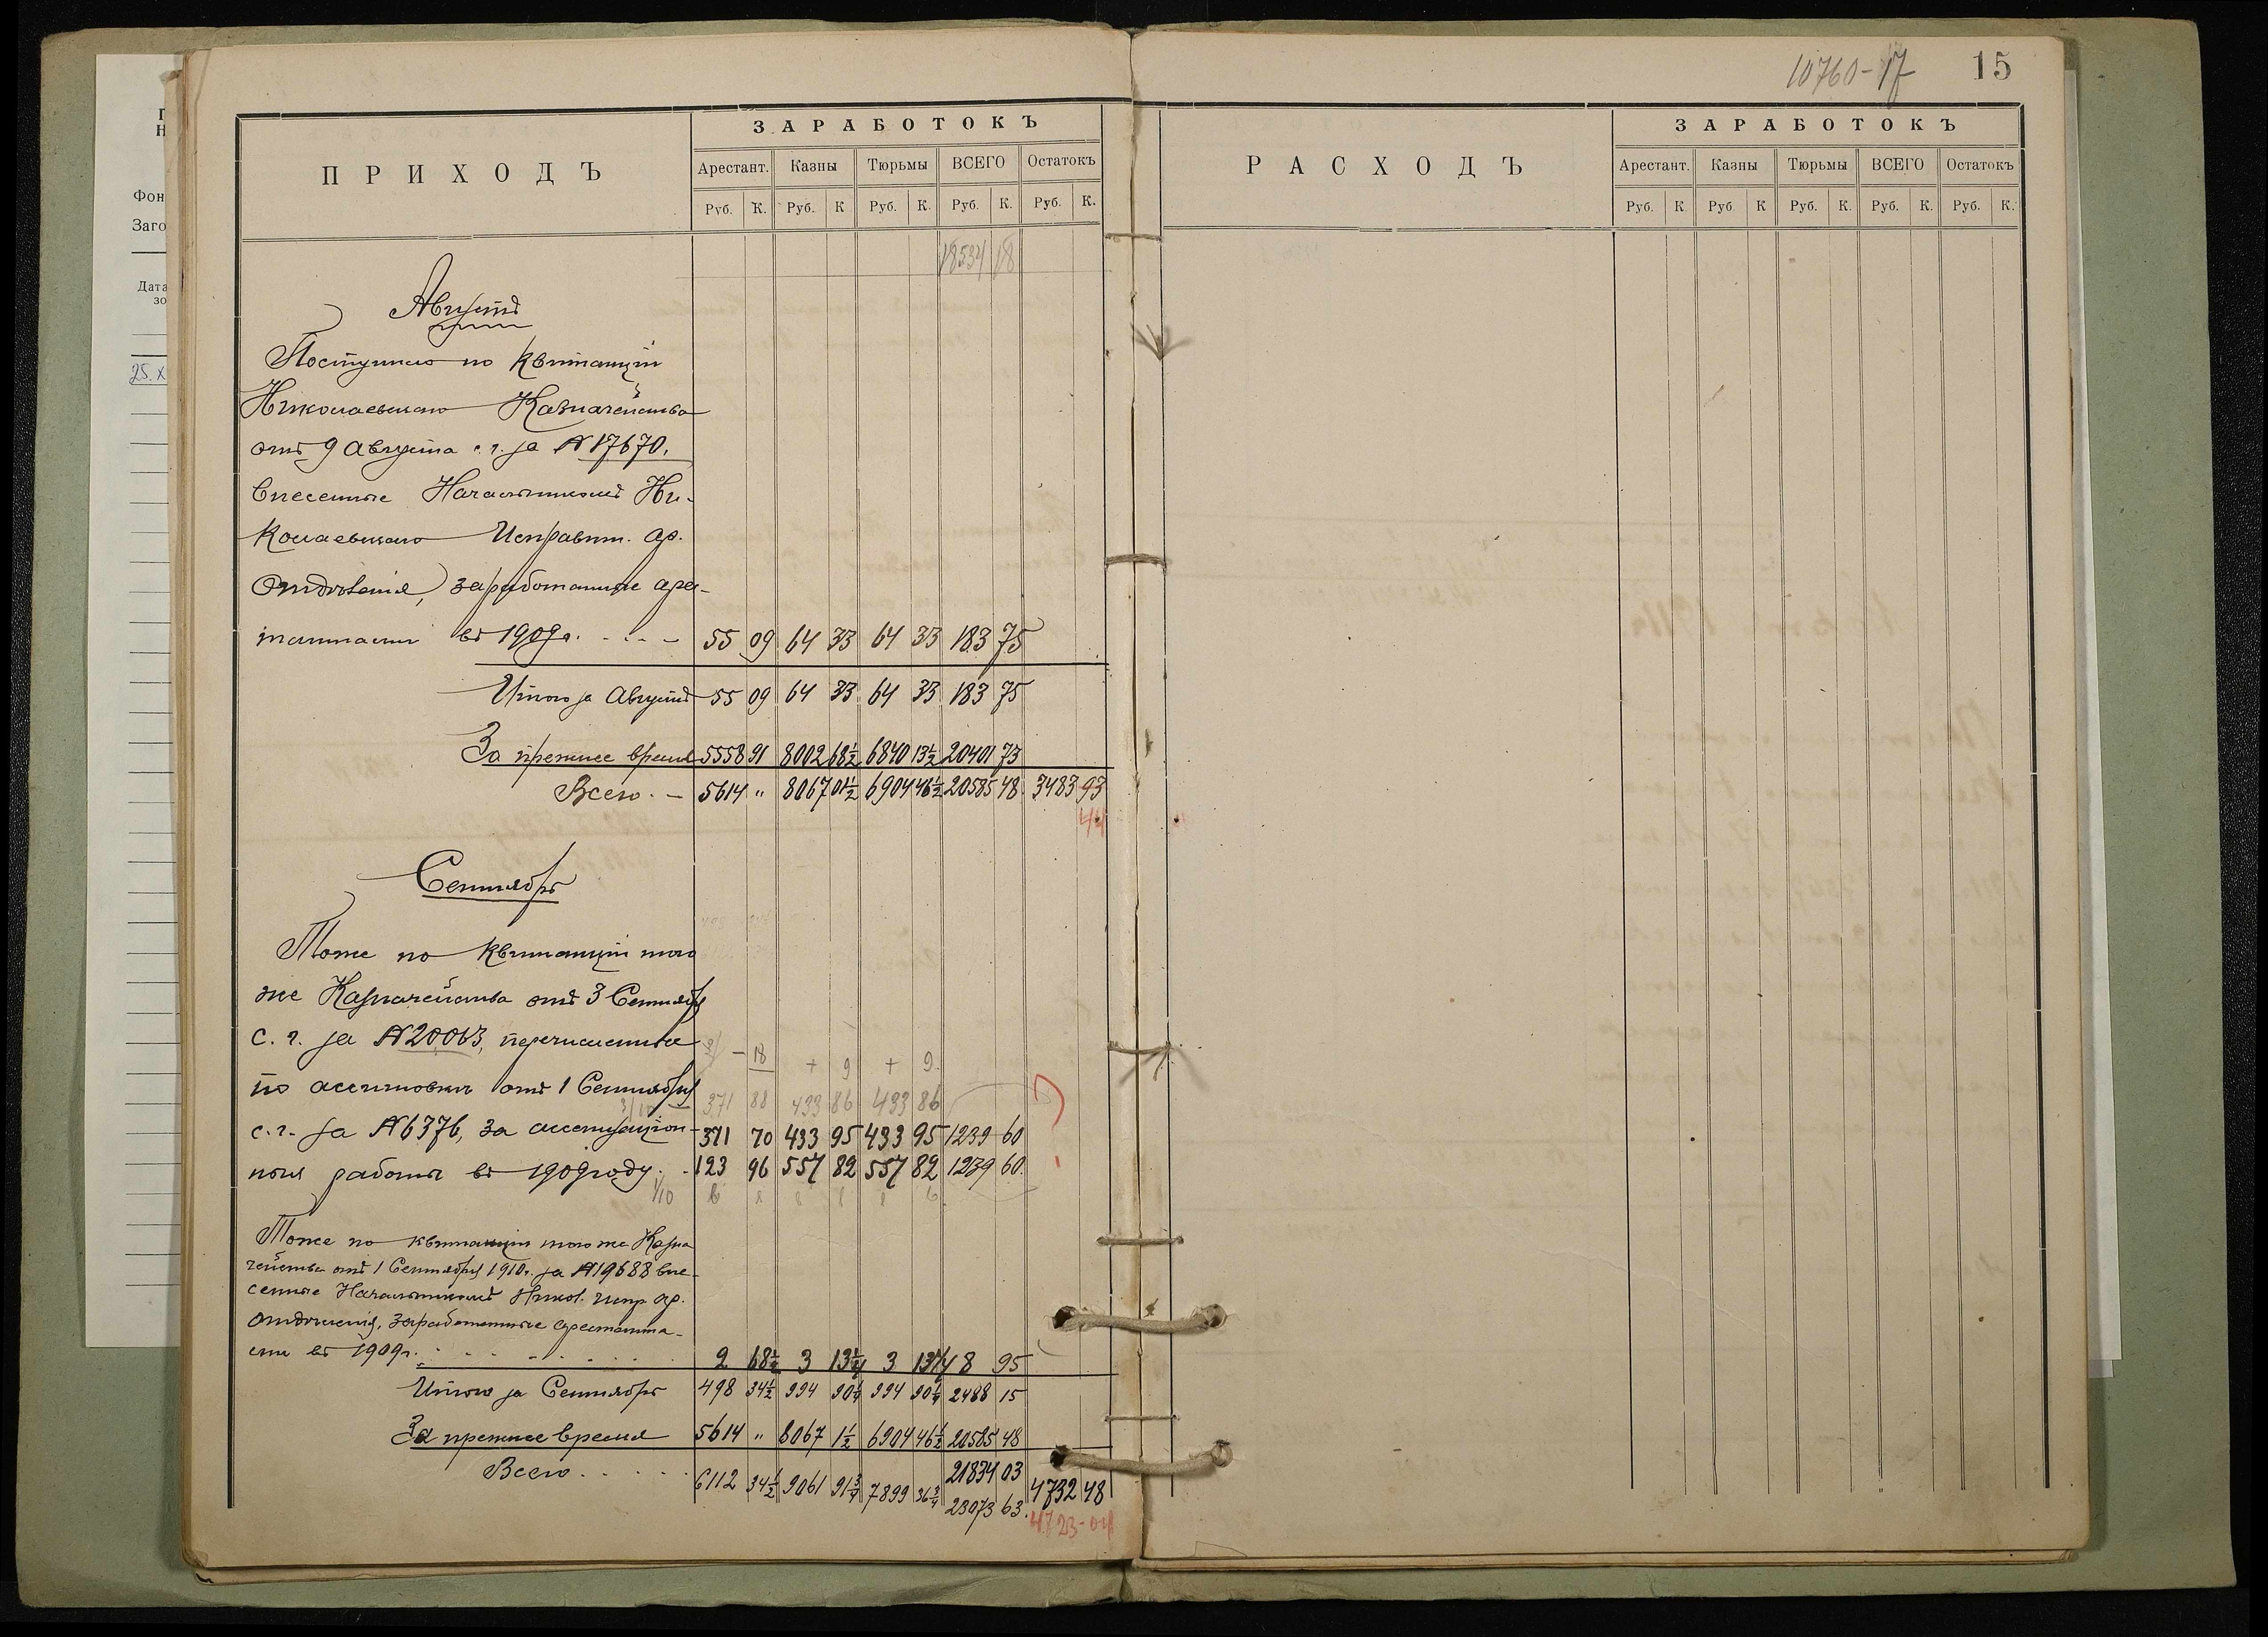 10760-17 15
П
Н
Фон
Заго
Дата
зо
25.X
ПРИХОДЪ
ЗАРАБОТОКЪ
Арестант. Казны Тюрьмы ВСЕГО Остатокъ
Руб. К. Руб. К Руб. К. Руб. К. Руб. К.
18534 18
Августъ
Поступило по квитанціи
Николаевскаго Казначейства
отъ 9 Августа с. г. за № 17670,
внесенные Начальникомъ Ни-
колаевскаго Исправит. ар.
Отдѣленія, заработанные арес-
тантами въ 1909 г. 55 09 64 33 64 33 183 75
Итого за Августъ 55 09 64 33 64 33 183 75
За прежнее время 5558 91 8002 68½ 6840 13½ 20401 73
Всего. — 5614 „ 8067 01½ 6904 46½ 20585 48 3483 93
44
Сентябрь
Тоже по квитанціи того
же Казначейства отъ 3 Сентября
с. г. за № 20063, перечисленные
— 18 + 9 + 9
по ассигновкѣ отъ 1 Сентября
371 88 433 86 433 86
с. г. за № 6376, за ассенизацион- 371 70 433 95 433 95 1239 60
ныя работы въ 1909 году. 123 96 557 82 557 82 1239 60
Тоже по квитанціи того же Казна
чейства отъ 1 Сентября 1910 г. за № 19688 вне-
сенные Начальникомъ Никол. испр. ар.
отдѣленія, заработанные арестанта-
ми въ 1909 г. 2 68½ 3 13¼ 3 13¼ 8 95
Итого за Сентябрь 498 34½ 994 90¼ 994 90¼ 2488 15
За прежнее время 5614 „ 8067 1½ 6904 46½ 20585 48
Всего 6112 34½ 9061 91¾ 7899 36¾ 21834 03 4732 48
23073 63.
4723-04
РАСХОДЪ
ЗАРАБОТОКЪ
Арестант. Казны Тюрьмы ВСЕГО Остатокъ
Руб. К. Руб. К Руб. К. Руб. К. Руб. К.